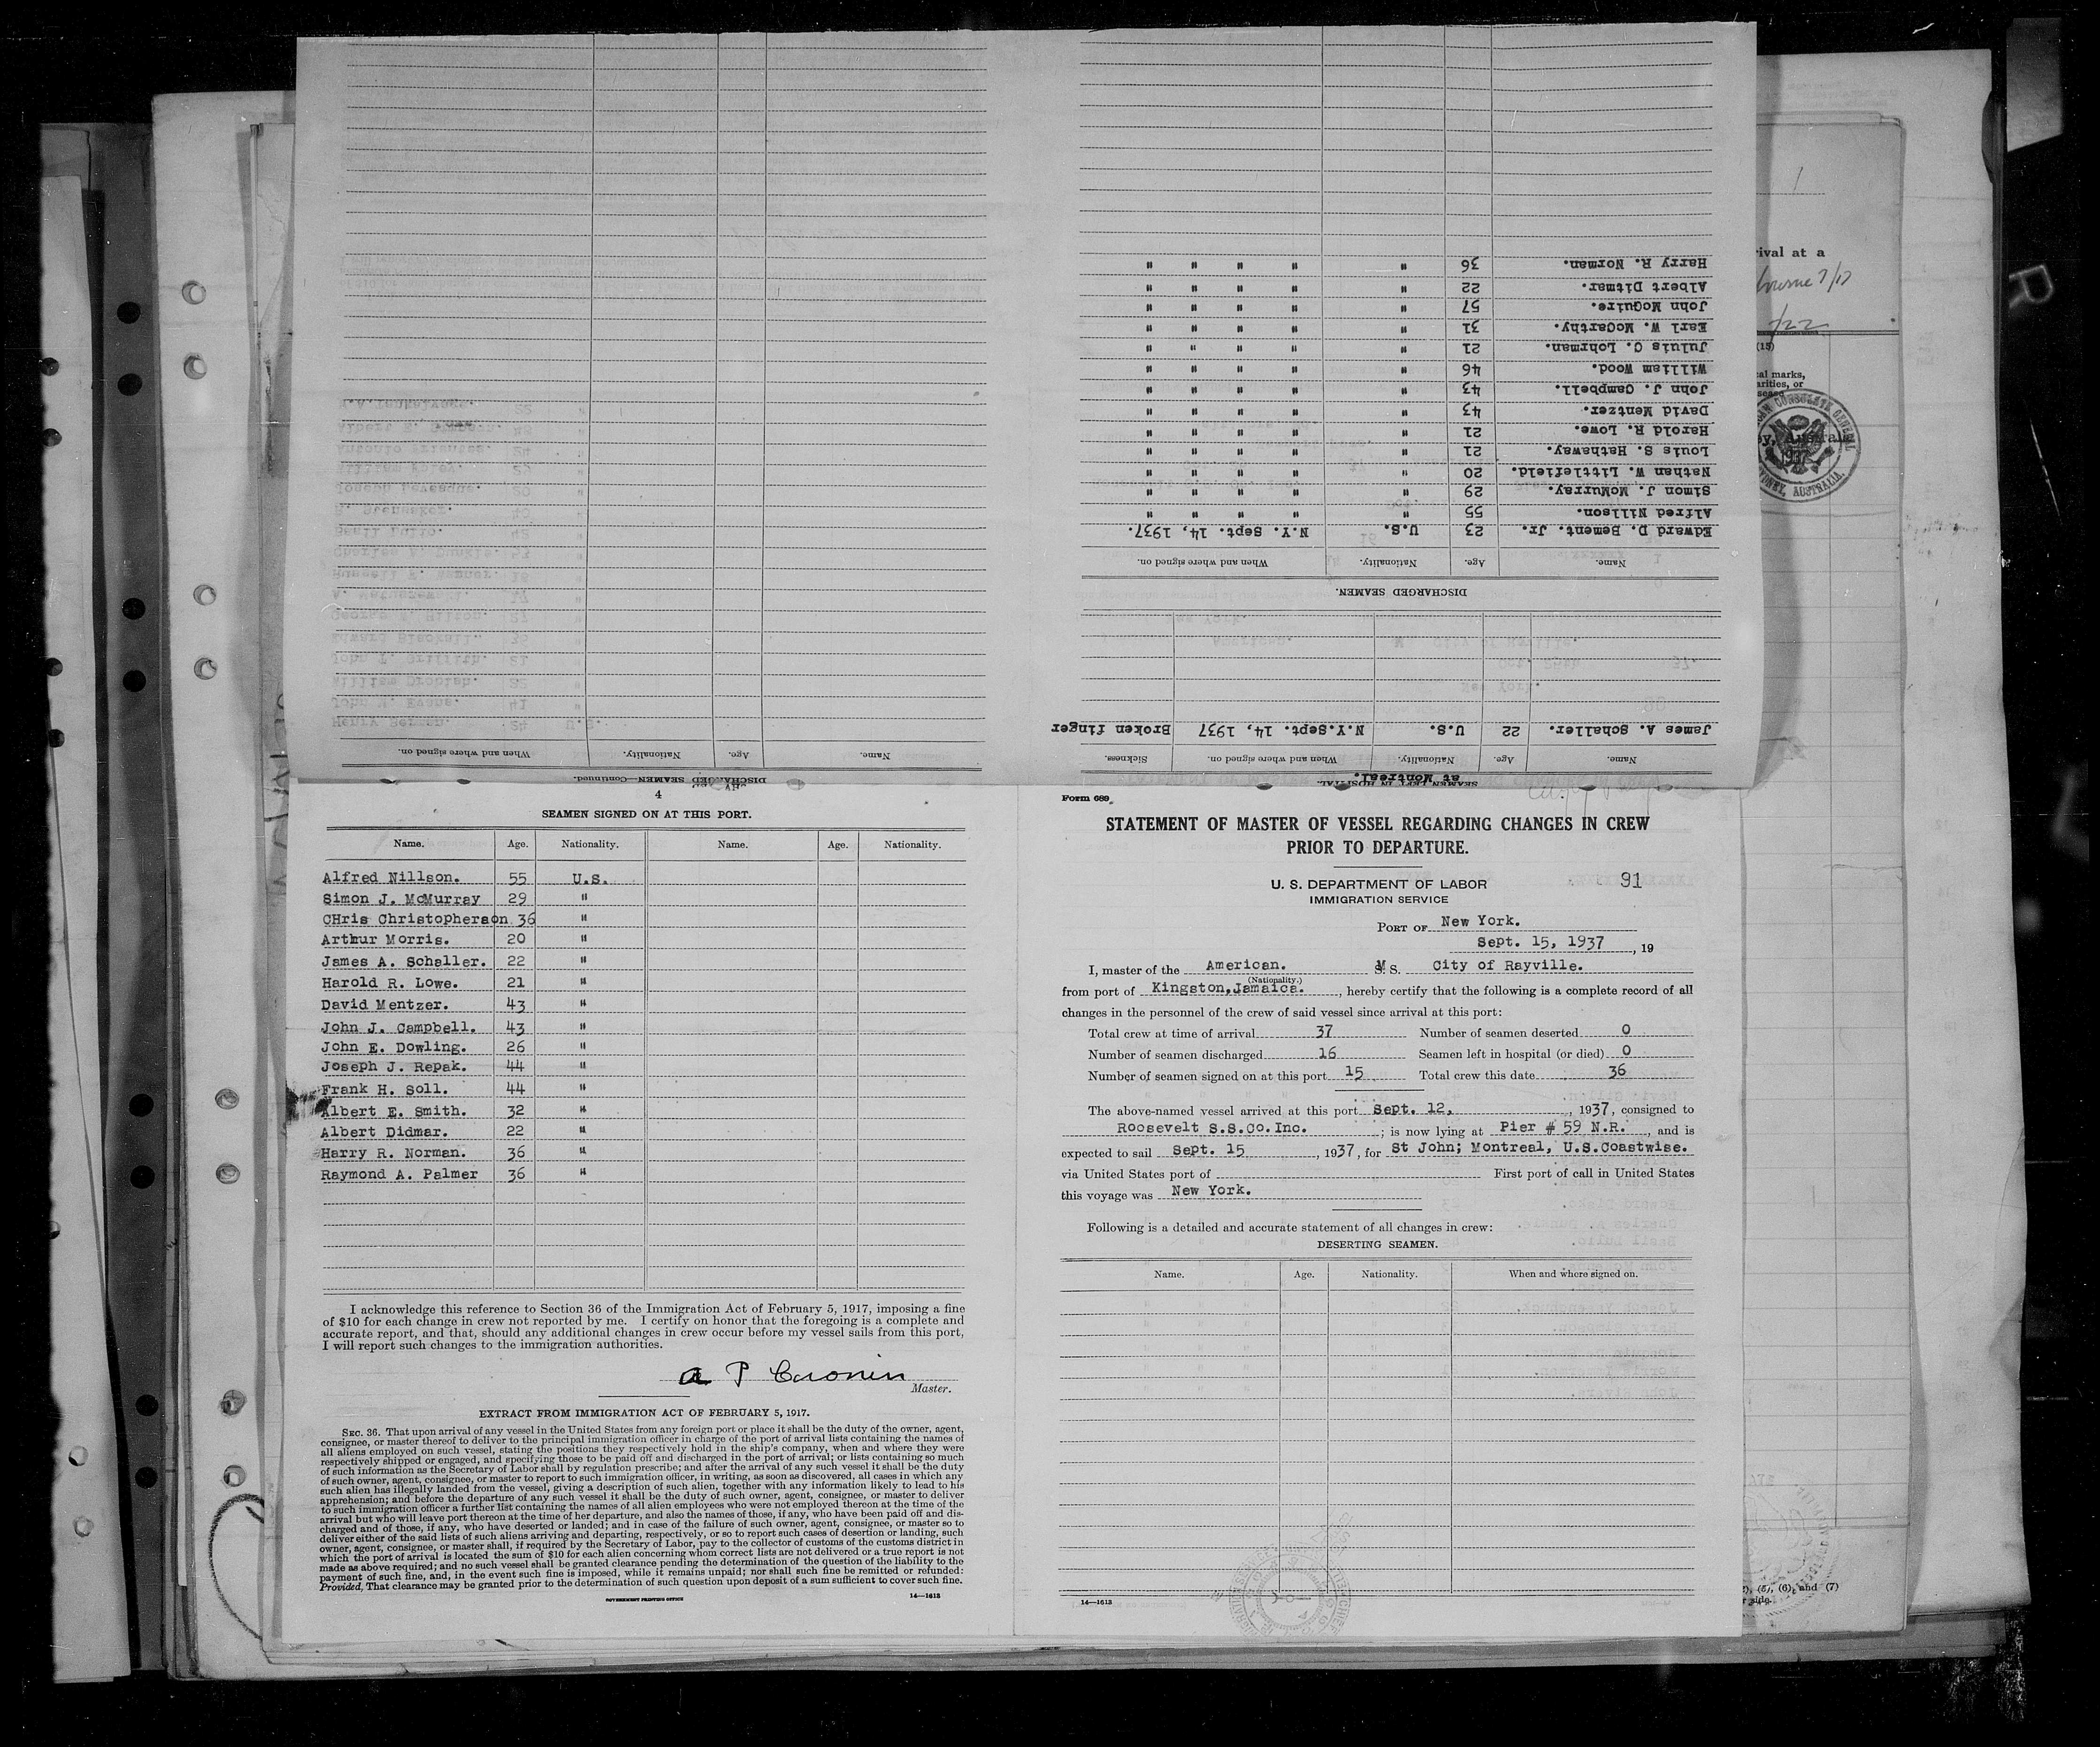 DISCHARGED SEAMEN—Continued.
Name. Age. Nationality. When and where signed on.
SEAMEN LEFT IN HOSPITAL.
at Montreal.
Name. Age. Nationality. When and where signed on. Sickness.
James A. Schaller. 22 U.S. N.Y.Sept. 14, 1937 Broken finger
DISCHARGED SEAMEN.
Name. Age. Nationality. When and where signed on.
Edward D. Bement. Jr. 23 U.S. N.Y. Sept. 14, 1937.
Alfred Nillson. 55 " " " " "
Simon J. McMurray. 29 " " " " "
Nathan W. Littlefield. 20 " " " " "
Louis S. Hathaway. 21 " " " " "
Harold R. Lowe. 21 " " " " "
David Mentzer. 43 " " " " "
John J. Campbell. 43 " " " " "
William Wood. 46 " " " " "
Juluis C. Lohrman. 21 " " " " "
Earl W. McCarthy. 31 " " " " "
John McGuire. 57 " " " " "
Albert Ditmar. 22 " " " " "
Harry R. Norman. 36 " " " " "
4
SEAMEN SIGNED ON AT THIS PORT.
Name. Age. Nationality. Name. Age. Nationality.
Alfred Nillson. 55 U.S.
Simon J. McMurray 29 "
CHris Christopherson 36 "
Arthur Morris. 20 "
James A. Schaller. 22 "
Harold R. Lowe. 21 "
David Mentzer. 43 "
John J. Campbell. 43 "
John E. Dowling. 26 "
Joseph J. Repak. 44 "
Frank H. Soll. 44 "
Albert E. Smith. 32 "
Albert Didmar. 22 "
Harry R. Norman. 36 "
Raymond A. Palmer 36 "
I acknowledge this reference to Section 36 of the Immigration Act of February 5, 1917, imposing a fine
of $10 for each change in crew not reported by me. I certify on honor that the foregoing is a complete and
accurate report, and that, should any additional changes in crew occur before my vessel sails from this port,
I will report such changes to the immigration authorities.
A P Cronin
Master.
EXTRACT FROM IMMIGRATION ACT OF FEBRUARY 5, 1917.
SEC. 36. That upon arrival of any vessel in the United States from any foreign port or place it shall be the duty of the owner, agent,
consignee, or master thereof to deliver to the principal immigration officer in charge of the port of arrival lists containing the names of
all aliens employed on such vessel, stating the positions they respectively hold in the ship's company, when and where they were
respectively shipped or engaged, and specifying those to be paid off and discharged in the port of arrival; or lists containing so much
of such information as the Secretary of Labor shall by regulation prescribe; and after the arrival of any such vessel it shall be the duty
of such owner, agent, consignee, or master to report to such immigration officer, in writing, as soon as discovered, all cases in which any
such alien has illegally landed from the vessel, giving a description of such alien, together with any information likely to lead to his
apprehension; and before the departure of any such vessel it shall be the duty of such owner, agent, consignee, or master to deliver
to such immigration officer a further list containing the names of all alien employees who were not employed thereon at the time of the
arrival but who will leave port thereon at the time of her departure, and also the names of those, if any, who have been paid off and dis-
charged and of those, if any, who have deserted or landed; and in case of the failure of such owner, agent, consignee, or master so to
deliver either of the said lists of such aliens arriving and departing, respectively, or so to report such cases of desertion or landing, such
owner, agent, consignee, or master shall, if required by the Secretary of Labor, pay to the collector of customs of the customs district in
which the port of arrival is located the sum of $10 for each alien concerning whom correct lists are not delivered or a true report is not
made as above required; and no such vessel shall be granted clearance pending the determination of the question of the liability to the
payment of such fine, and, in the event such fine is imposed, while it remains unpaid; nor shall such fine be remitted or refunded:
Provided, That clearance may be granted prior to the determination of such question upon deposit of a sum sufficient to cover such fine.
GOVERNMENT PRINTING OFFICE 14—1613
Form 689
STATEMENT OF MASTER OF VESSEL REGARDING CHANGES IN CREW
PRIOR TO DEPARTURE.
U. S. DEPARTMENT OF LABOR 91
IMMIGRATION SERVICE
PORT OF New York.
Sept. 15, 1937, 19
I, master of the American. M S. City of Rayville.
(Nationality.)
from port of Kingston,Jamaica., hereby certify that the following is a complete record of all
changes in the personnel of the crew of said vessel since arrival at this port:
Total crew at time of arrival 37 Number of seamen deserted 0
Number of seamen discharged 16 Seamen left in hospital (or died) 0
Number of seamen signed on at this port 15 Total crew this date 36
The above-named vessel arrived at this port Sept. 12, , 1937, consigned to
Roosevelt S.S.Co.Inc. ; is now lying at Pier # 59 N.R. , and is
expected to sail Sept. 15 , 1937, for St John; Montreal, U.S.Coastwise.
via United States port of First port of call in United States
this voyage was New York.
Following is a detailed and accurate statement of all changes in crew:
DESERTING SEAMEN.
Name. Age. Nationality. When and where signed on.
14—1613
rival at a
(15)
al marks,
arities, or
CONSULATE GENERAL
1937
SYDNEY, AUSTRALIA
(5), (6), and (7)
side.